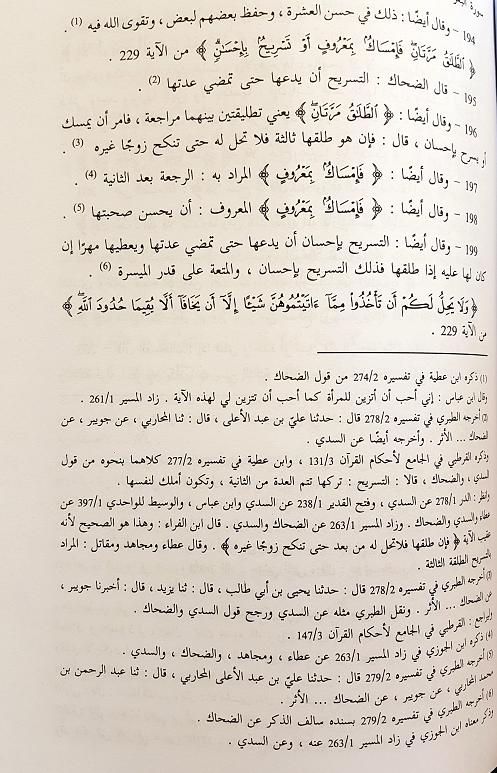 سورة البقرة
194 - وقال أيضًا : ذلك في حسن العشرة ، وحفظ بعضهم لبعض ، وتقوى الله فيه (1) .
﴿ ٱلطَّلَٰقُ مَرَّتَانِ ۖ فَإِمْسَاكٌۢ بِمَعْرُوفٍ أَوْ تَسْرِيحٌۢ بِإِحْسَٰنٍ ﴾ من الآية 229 .
195 - قال الضحاك : التسريح أن يدعها حتى تمضي عدتها (2) .
196 - وقال أيضًا : ﴿ ٱلطَّلَٰقُ مَرَّتَانِ ۖ ﴾ يعني تطليقتين بينهما مراجعة ، فامر أن يمسك
أو يسرح بإحسان ، قال : فإن هو طلقها ثالثة فلا تحل له حتى تنكح زوجًا غيره (3) .
197 - وقال أيضًا : ﴿ فَإِمْسَاكٌۢ بِمَعْرُوفٍ ﴾ المراد به : الرجعة بعد الثانية (4) .
198 - وقال أيضًا : ﴿ فَإِمْسَاكٌۢ بِمَعْرُوفٍ ﴾ المعروف : أن يحسن صحبتها (5) .
199 - وقال أيضًا : التسريح بإحسان أن يدعها حتى تمضي عدتها ويعطيها مهرًا إن
كان لها عليه إذا طلقها فذلك التسريح بإحسان ، والمتعة على قدر الميسرة (6) .
﴿ وَلَا يَحِلُّ لَكُمْ أَن تَأْخُذُوا۟ مِمَّآ ءَاتَيْتُمُوهُنَّ شَيْـًٔا إِلَّآ أَن يَخَافَآ أَلَّا يُقِيمَا حُدُودَ ٱللَّهِ ۖ ﴾
من الآية 229 .
(1) ذكره ابن عطية في تفسيره 274/2 من قول الضحاك .
وقال ابن عباس : إني أحب أن أتزين للمرأة كما أحب أن تتزين لي لهذه الآية . زاد المسير 261/1 .
(2) أخرجه الطبري في تفسيره 278/2 قال : حدثنا علي بن عبد الأعلى ، قال : ثنا المحاربي ، عن جويبر ، عن
الضحاك ... الأثر . وأخرجه أيضًا عن السدي .
وذكره القرطبي في الجامع لأحكام القرآن 131/3 ، وابن عطية في تفسيره 277/2 كلاهما بنحوه من قول
السدي ، والضحاك ، قالا : التسريح : تركها تتم العدة من الثانية ، وتكون أملك لنفسها .
وانظر : الدر 278/1 عن السدي ، وفتح القدير 238/1 عن السدي وابن عباس ، والوسيط للواحدي 397/1 عن
عطاء والسدي والضحاك . وزاد المسير 263/1 عن الضحاك والسدي . قال ابن الفراء : وهذا هو الصحيح لأنه
عقيب الآية ﴿ فإن طلقها فلاتحل له من بعد حتى تنكح زوجًا غيره ﴾ . وقال عطاء ومجاهد ومقاتل : المراد
بالتسريح الطلقة الثالثة .
(3) أخرجه الطبري في تفسيره 278/2 قال : حدثنا يحيى بن أبي طالب ، قال : ثنا يزيد ، قال : أخبرنا جويبر ،
عن الضحاك ... الأثر . ونقل الطبري مثله عن السدي ورجح قول السدي والضحاك .
وليراجع : القرطبي في الجامع لأحكام القرآن 147/3 .
(4) ذكره ابن الجوزي في زاد المسير 263/1 عن عطاء ، ومجاهد ، والضحاك ، والسدي .
(5) أخرجه الطبري في تفسيره 279/2 قال : حدثنا علي بن عبد الأعلى المحاربي ، قال : ثنا عبد الرحمن بن
محمد المحاربي ، عن جويبر ، عن الضحاك ... الأثر .
(6) أخرجه الطبري في تفسيره 279/2 بسنده سالف الذكر عن الضحاك .
وذكر معناه ابن الجوزي في زاد المسير 263/1 عنه ، وعن السدي .